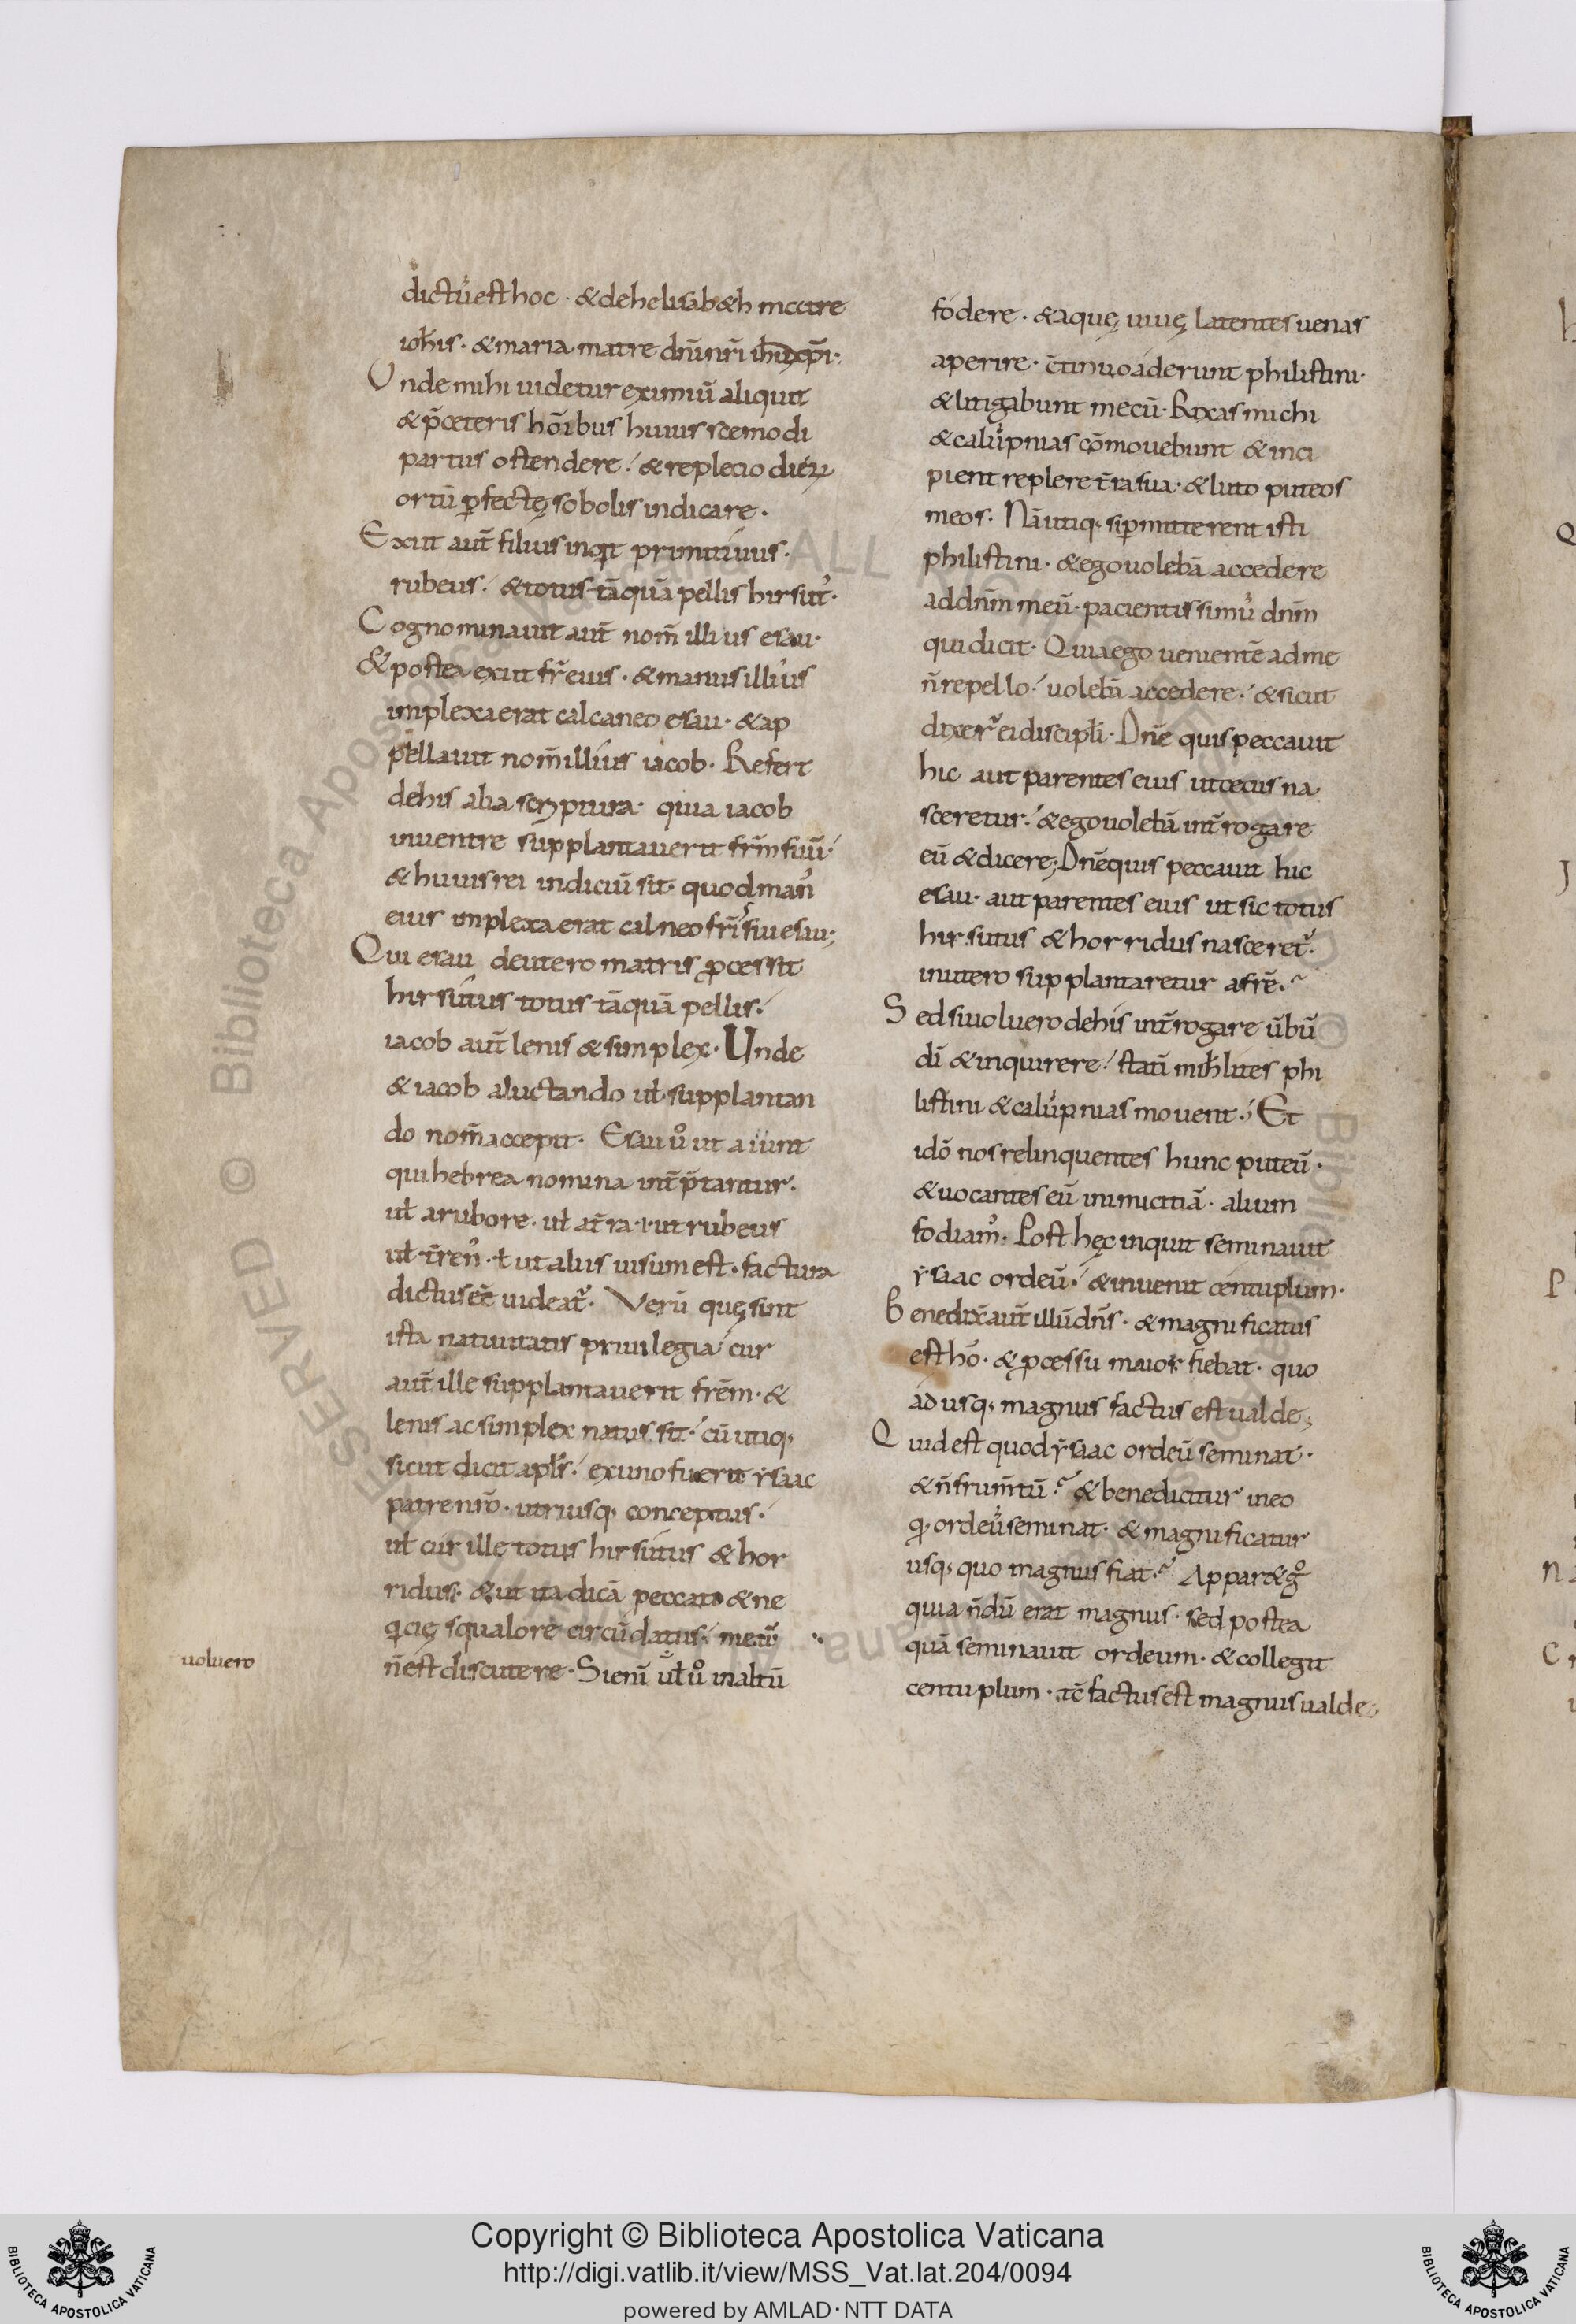 dictũ est hoc · & de helisab&h matre
ioħis · & maria matre dñi nr̃i ihũ xp̃i ·
Vnde mihi uidetur eximiũ aliquit
& p̃ ceteris hõibus huius scemodi
partus ostendere · & replecio dieꝝ
ortũ ꝑfectę sobolis indicare ·
Exiit aut̃ filius inqꝉt primitiuus ·
rubeus · & totus tãquã pellis hirsut᾿ ·
Cognominauit aut̃ nom̃ illius esau ·
& postea exiit fr̃ eius · & manus illius
implexa erat calcaneo esau · & ap
pellauit nom̃ illius iacob · Refert
de his alia scriptura · quia iacob
in uentre supplantauerit fr̃m suũ ·
& huius rei indiciũ sit · quod man᾿
eius implexa erat calneo fr̃is sui esau ;
Qui esau de utero matris ꝓcessit
hirsutus totus tãquã pellis ·
iacob aut̃ lenis & simplex · Unde
& iacob a luctando uꝉ · supplantan
do nom̃ accepit · Esau uº ut aiunt
qui hebrea nomina int̃p̃tantur ·
uꝉ a rubore · uꝉ a t̃ra · i · ut rubeus
uꝉ t̃ren᾿ · ꝉ ut aliis uisum est · factura
dictus eẽ uideat᾿ · Verũ quę sint
ista natiuitatis priuilegia · cur
aut̃ ille supplantauerit fr̃em · &
lenis ac simplex natus sit · cũ utiq;
sicut dicit aplꝰs · ex uno fuerit ẏsaac
patre nr̃o · utriusq; conceptus ·
uꝉ cur ille totus hirsutus & hor
ridus · & ut ita dicã peccato & ne
qꝉcię squalore circũdatus · meũ
ñ est discutere · Si eni̇̃ uꝉuº in altũ
uoluero
fodere · & aquę uiuę latentes uenas
aperire · c̃tinuo aderunt philistini ·
& litigabunt mecũ · Rixas michi
& calũpnias cõmouebunt & inci
pient replere t̃ra sua · & luto puteos
meos · Nã utiq; si ꝑmitterent isti
philistini · & ego uolebã accedere
ad dñm meũ · pacientissimũ dñm
qui dicit · Quia ego uenientẽ ad me
ñ repello · uolebã accedere · & sicut
dixer᾿ ei discipꝉi · Dñe quis peccauit
hic aut parentes eius ut cecus na
sceretur · & ego uolebã int̃rogare
eũ & dicere ; Dñe quis peccauit hic
esau · aut parentes eius ut sic totus
hirsutus & horridus nasceret᾿ ·
in utero supplantaretur a fr̃e ·
Sed si uoluero de his int̃rogare ũbũ
dĩ & inquirere · statĩ mihꝉ lites phi
listini & calũpnias mouent · Et
idõ nos relinquentes hunc puteũ ·
& uocantes eũ inimicitiã · alium
fodiam᾿ · Post hęc inquit seminauit
ẏsaac ordeũ · & inuenit centuplum ·
Benedix̃ aut̃ illũ dñs · & magnificatus
est hõ · & ꝓcessu maior fiebat · quo
ad usq; magnus factus est ualde ;
Quid est quod ẏsaac ordeũ seminat ·
& ñ frum̃tũ · & benedicitur in eo
qꝉ ordeũ seminat · & magnificatur
usq; quo magnus fiat · Appar& gº
quia ñdũ erat magnus · sed postea
quã seminauit ordeum · & collegit
centuplum · tc̃ factus est magnus ualde ·
Copyright © Biblioteca Apostolica Vaticana
http://digi.vatlib.it/view/MSS_Vat.lat.204/0094
powered by AMLAD · NTT DATA